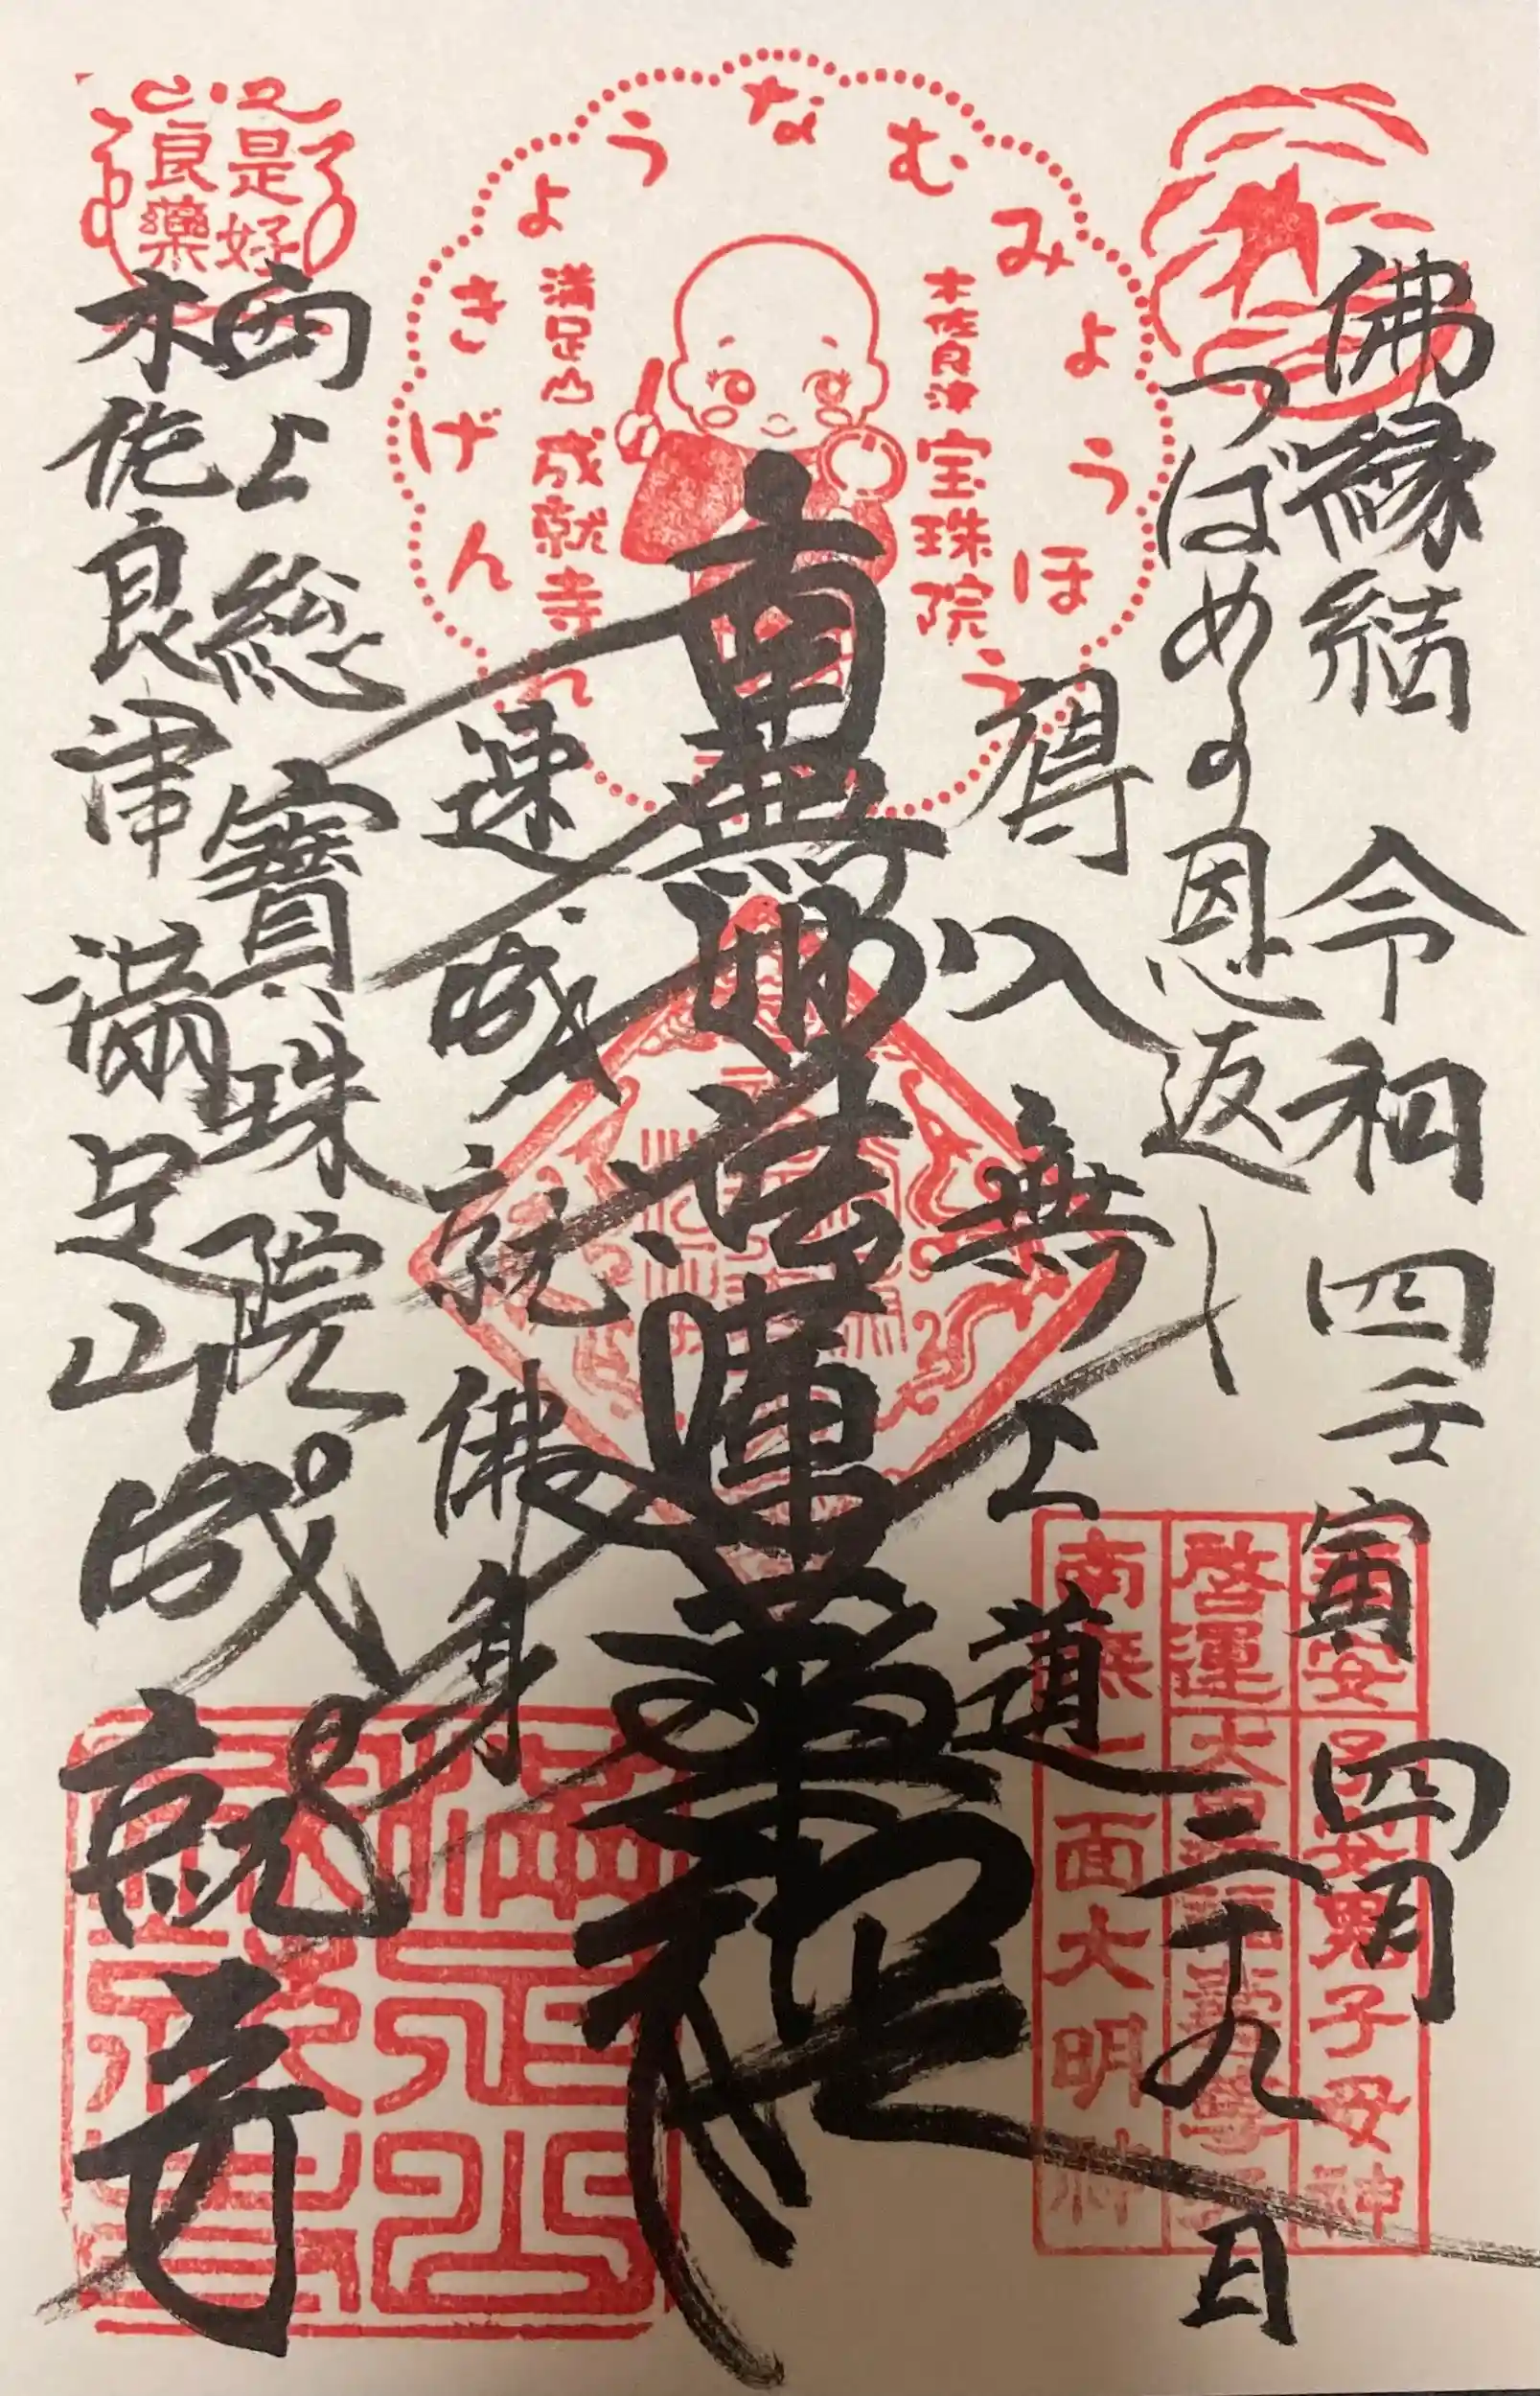 佛縁結 令和四壬寅 四月
つばめの恩返し 二十九日
得入無上道
南無妙法蓮華経
速成就佛身
西上総 寶珠院
木佐良津 満足山 成就寺
是好
良薬
なむみょうほう
ん
げ
き
よ
う
木佐良津 宝珠院
満足山 成就寺
子安鬼子母神
啓運大
南無一面大明神